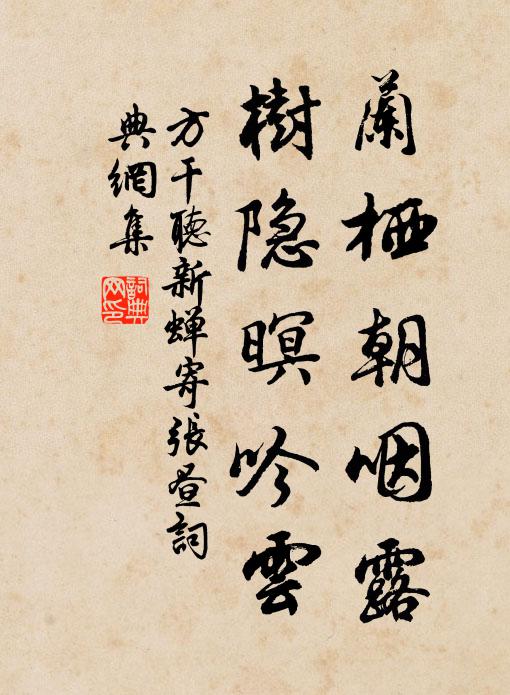 蘭栖朝咽露
樹隐暝吟雲
方干聴新蝉寄張昼詞
典網集
詞典
网印